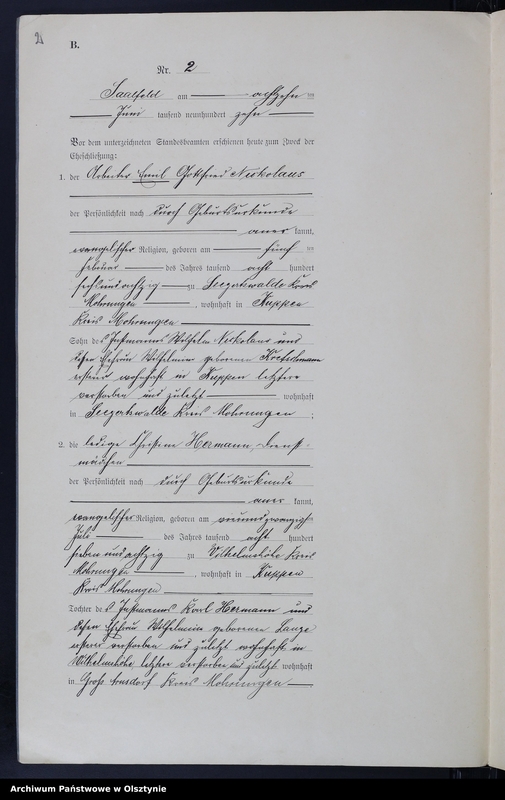 B.
Nr. 2
Saalfeld am achtzehn ten
Juni tausend neunhundert zehn
Vor dem unterzeichneten Standesbeamten erschienen heute zum Zweck der
Eheschließung:
1. der Arbeiter Emil Gottfried Neukolaus
der Persönlichkeit nach durch Geburtsurkunde
aner kannt,
evangelischer Religion, geboren am fünf ten
Februar des Jahres tausend acht hundert
sechsundachtzig zu Seegertswalde Kreis
Mohrungen, wohnhaft in Kuppen
Kreis Mohrungen
Sohn des Instmanns Wilhelm Neukolaus und
dessen Ehefrau Wilhelmine geborenen Kretschmann
ersterer wohnhaft in Kuppen letztere
verstorben und zuletzt wohnhaft
in Seegertswalde Kreis Mohrungen ;
2. die ledige Christine Hermann, Dienst-
mädchen
der Persönlichkeit nach durch Geburtsurkunde
aner kannt,
evangelischer Religion, geboren am neunundzwanzigsten
Juli des Jahres tausend acht hundert
siebenundachtzig zu Wilhelmshöhe Kreis
Mohrungen, wohnhaft in Kuppen
Kreis Mohrungen
Tochter des Instmanns Karl Hermann und
dessen Ehefrau Wilhelmine geborenen Lange
ersterer verstorben und zuletzt wohnhaft in
Wilhelmshöhe letztere verstorben und zuletzt wohnhaft
in Groß Arnsdorf Kreis Mohrungen
Archiwum Państwowe w Olsztynie